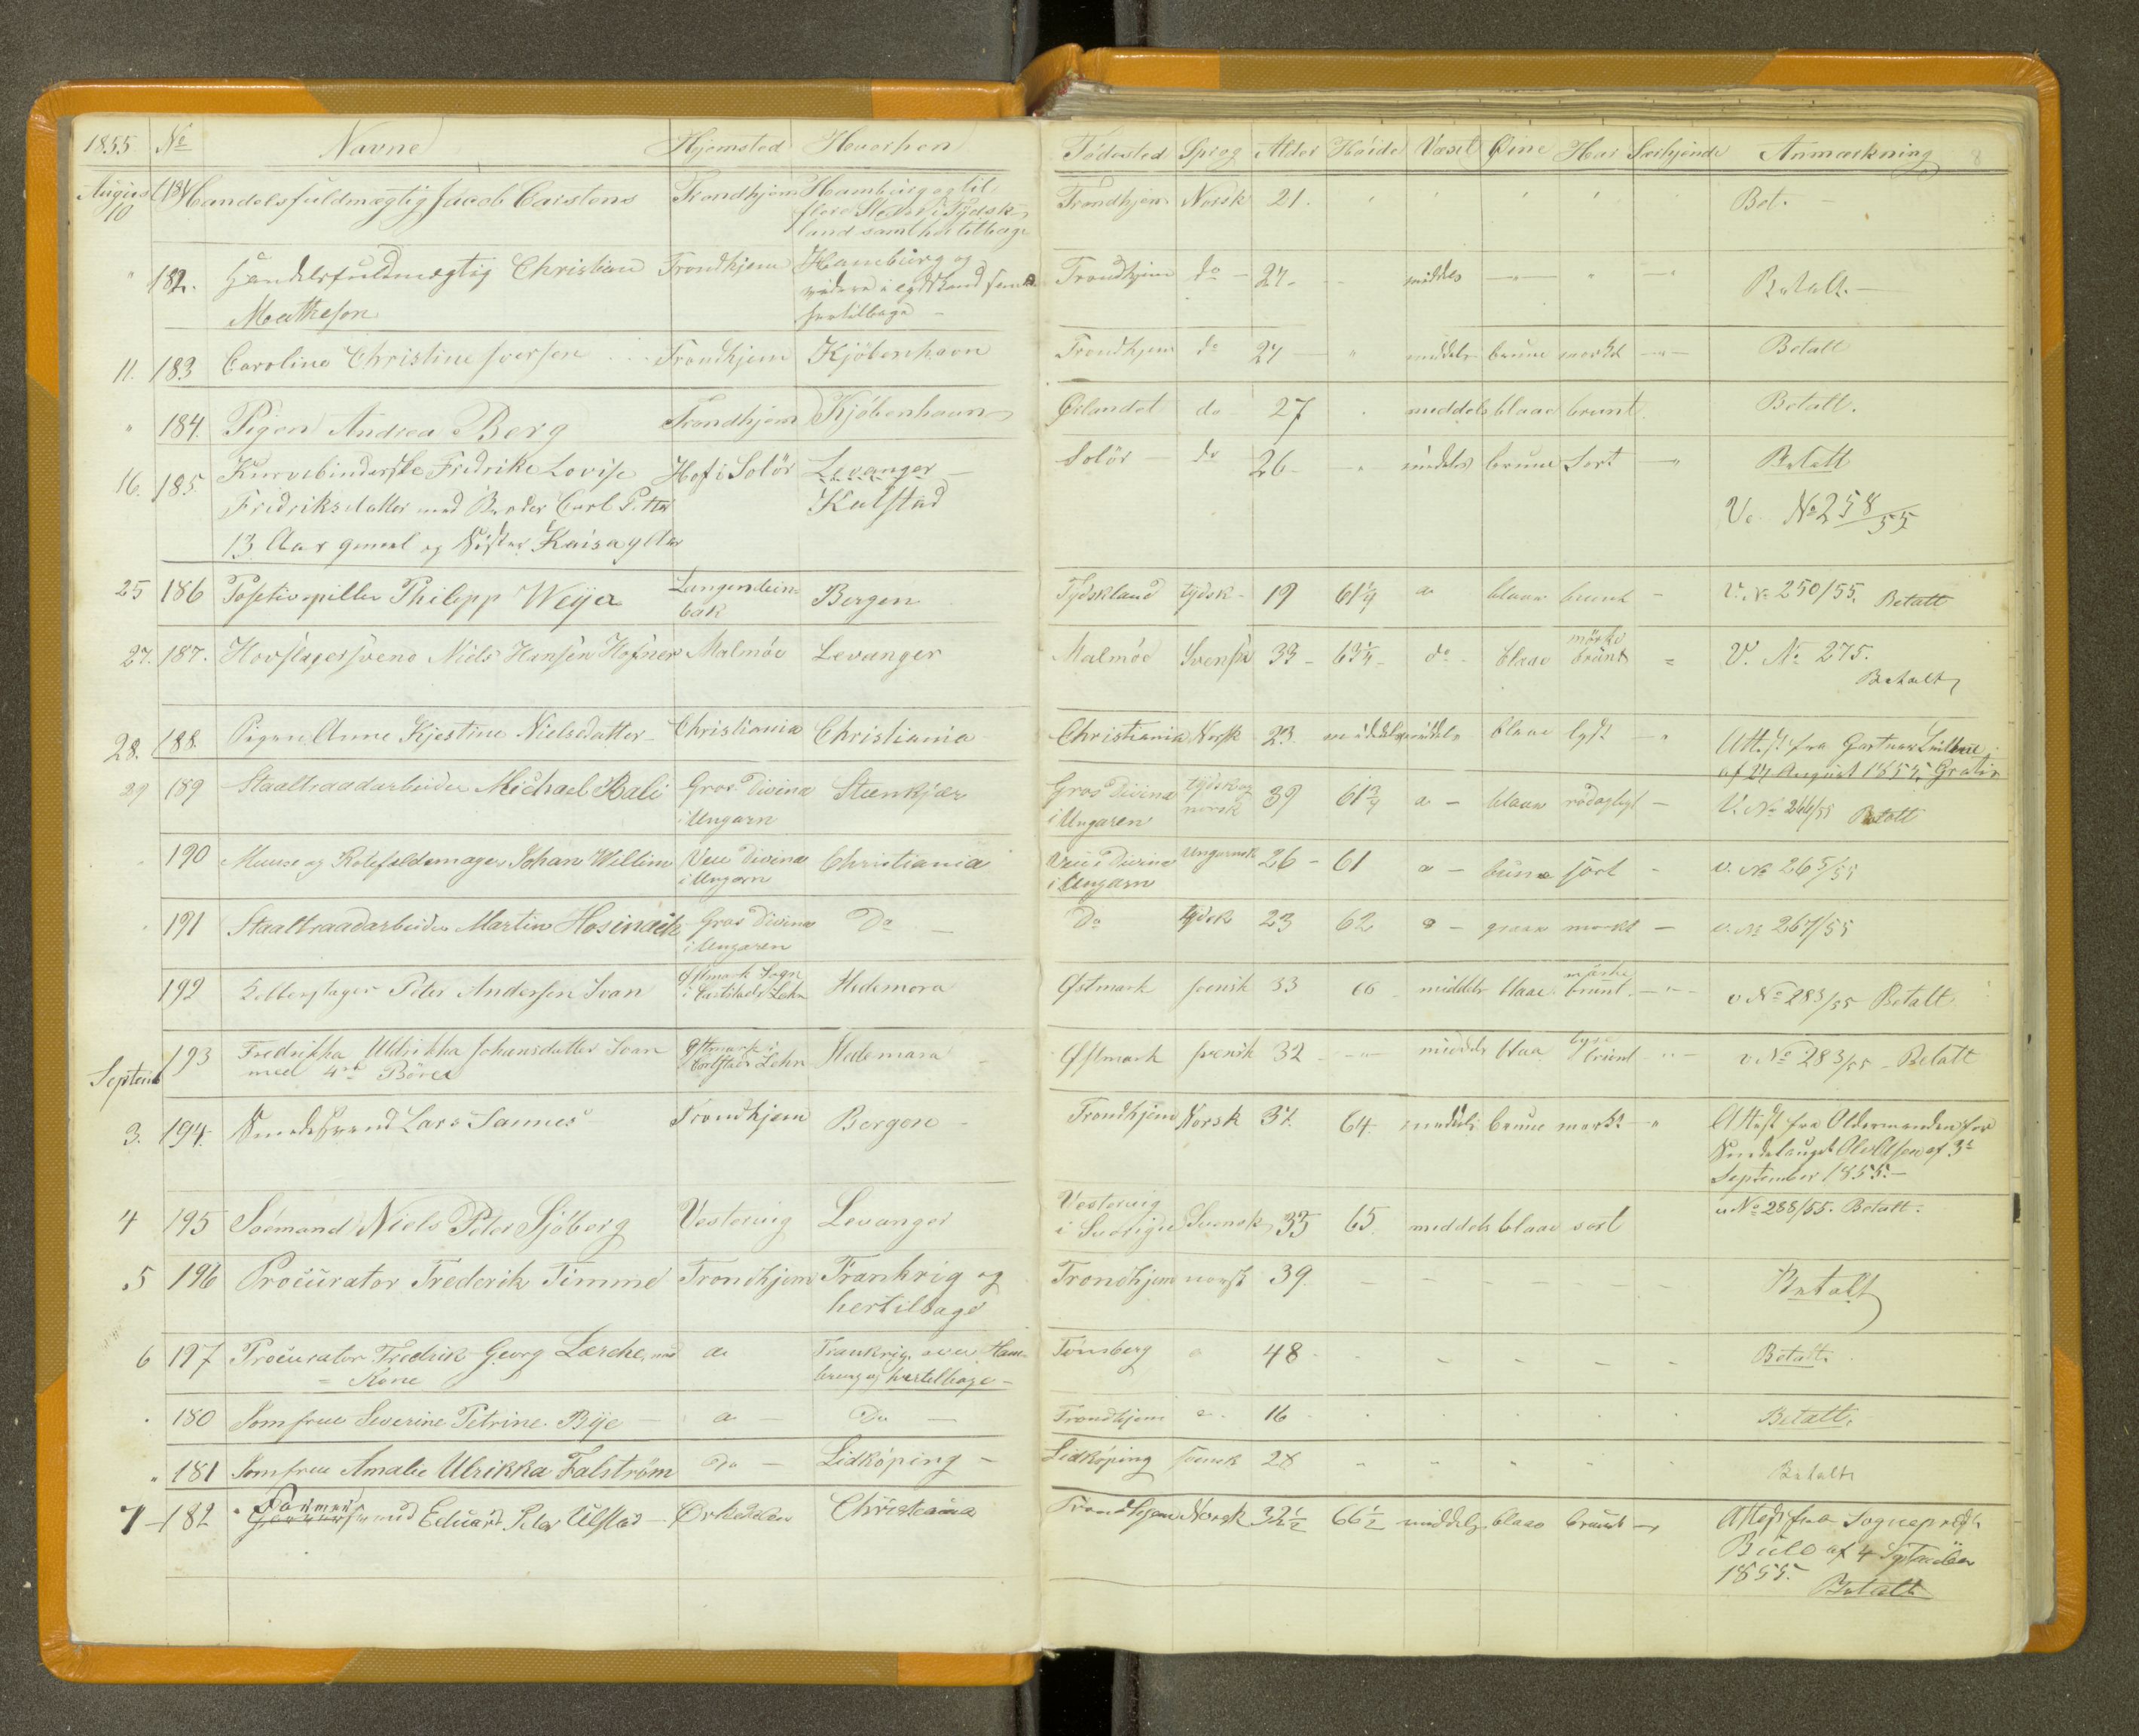 1855 No Navne Hjemsted Hvorhen Fødested Sprog Alder Höide Væxt Øine Haar Særkjende Anmærkning 8
August 10 181 Handelsfuldmægtig Jacob Carstens Trondhjem Hamburg og til Trondhjem Norsk 21. Bet. -
flere Steder i Tydsk-
land samt her tilbage
" 182. Handelsfuldmægtig Christian Trondhjem Hamburg og Trondhjem do - 27. middels - " - " - " Betalt. -
Matheson videre i Tydskland samt
hertilbage -
11. 183 Caroline Christine Iversen Trondhjem Kjöbenhavn Trondhjem do 27 - " middels brune mörkt - " - Betalt
" 184. Pigen Andrea Berg Trondhjem Kjöbenhavn Ørlandet do 27 middels blaae brunt Betalt.
16. 185. Kurvebinderske Fredrike Lovise Hof i Solör Levanger - Solör - do 26 - " middels brune Sort - " Betalt
Fredriksdatter med Broder Carl Petter Kulstad V. No 258/55
13 Aar gammel og Söster Kaisa 9 Aar
25 186 Positivspiller Philipp Weyer Langenstein= Bergen Tydskland tydsk - 19 61¼ a blaae brunt - V. No 250/55. Betalt
bak
27. 187. Hovslagersvend Niels Hansen Hofner Malmöe Levanger Malmöe Svensk 33 - 63¼ - do - blaae mörke brunt = V. No 275.
Betalt
28. 188. Pigen Anne Kjestine Nielsdatter - Christiania Christiania Christiania Norsk 23 middels middels blaae lyst - " Attest fra Gartner
af 24 August 1855. Gratis
29 189 Staaltraadarbeider Michael Bali Gros Divina Steenkjær Gros Divina tydsk og norsk 39 61¾ a - blaae rödagtigt - V. No 266/55 Betalt
i Ungarn i Ungaren
190 Muuse og Rottefældemager Johan Willim Veie Divina Christiania Veie Divina Ungarnsk 26 - 61 a - brune sort - v. No 265/55
i Ungarn i Ungarn
191 Staaltraadarbeider Martin Hosinack Gros Divina Do - Do tydsk 23 62 a - graae mörkt - v. No 267/55
i Ungaren
192 Peter Andersen Ivan Østmark Sogn Hedemora Østmark svensk 33 66 middels blaae mörke brunt - " - v No 283/55 Betalt.
i Carlstads Lehn
193 Fredrikka Uldrikka Johansdatter Ivan Østmark i Hedemara - Østmark svensk 32 - " - middels blaa lyse brunt " - v No 283/55 - Betalt
Septemb med 4re Börn Carlstads Lehn
3. 194. Smedesvend Lars Sannes Trondhjem Bergen - Trondhjem Norsk 37. 64. middels brune mörkt - " Attest fra Oldermanden for
Smedelauget Ole Olsen af 3d
September 1855. -
4 195 Søemand Niels Peter Sjöberg Vestervig Levanger Vestervig Svensk 35 65. middels blaae sort v No 288/55. Betalt.
i Sverige
5 196 Procurator Frederik Timme Trondhjem Frankrig og Trondhjem norsk 39. - - - - - - Betalt
hertilbage
6 197 Procurator Fredrik Georg Lerche, med a. Frankrig over Ham- Tönsberg a 48 - - - - - Betalt.
= Kone burg og hertilbage -
180 Jomfrue Severine Petrine Bye - a - Do - Trondhjem a. 16 Betalt.
" 181 Jomfrue Amalie Ulrikka Falström do - Lidköping - Lidköping svensk 28 " " " " " Betalt
7 - 182 Farversvend Eduard Peter Ulstad - Örkedalen Christiania Trondhjem Norsk 32½ 66½ middels blaae brunt - " Attest fra Sognepræst
Bull af 4 September
1855. Betalt